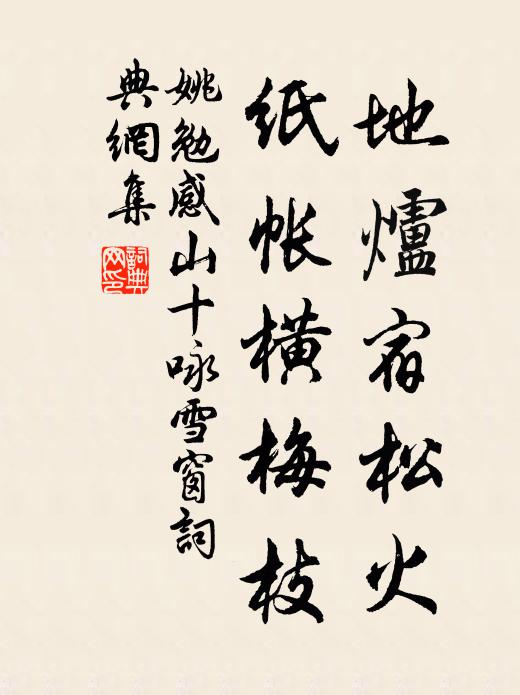 地爐宿松火
紙帳橫梅枝
姚勉感山十咏雪窗詞
典網集
詞典
网印